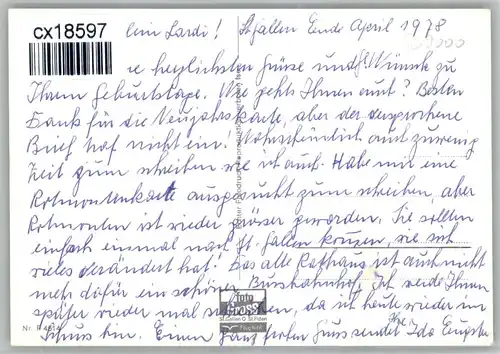 cx18597
lein Sardi! St. Gallen Ende April 1978
herzlichsten Grüsse und Wünsche zu
Ihrem Geburtstage. Wie gehts Ihnen auch? Besten
Dank für die Neujahrskarte, aber der versprochene
Brief traf nicht ein. Wahrscheinlich auch zu wenig
Zeit zum schreiben wie ich auch. Habe mir eine
Rotmontenkarte ausgesucht zum schreiben, aber
Rotmonten ist wieder grösser geworden. Sie sollten
einfach einmal nach St. Gallen kommen, wie sich
vieles verändert hat! Das alte Rathaus ist auch nicht
mehr dafür ein schöner Busbahnhof. Ich werde Ihnen
später wieder mal schreiben, da ich heute wieder im
Schuss bin. Einen ganz frohen Gruss sendet Ihre Ida
foto
GROSS
St. Gallen
Flugbild
Nr. F 4614